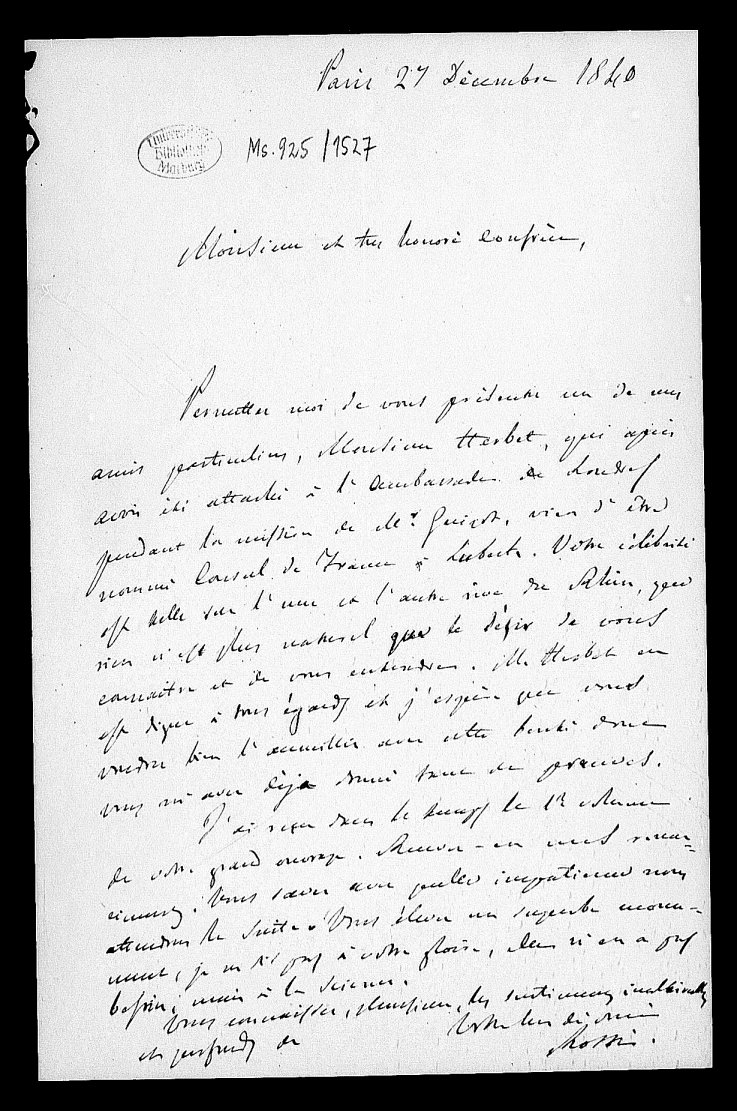 Paris 27 Décembre 1840
Universitäts
Bibliothek
Marburg
Ms. 925/1527
Monsieur et tres honoré confrère,
Permettez moi de vous présenter un de mes
amis particuliers, Monsieur Herbet, qui après
avoir été attaché à l'ambassade de Londres
pendant la mission de Mr. Guizot, vien d'être
nommé Consul de France à . Votre célébrité
est telle sur l'une et l'autre rive du Rhin, que
rien n'est plus naturel que le désir de vous
connaitre et de vous entendre. M. Herbet en
est digne à tous égards et j'espère que vous
voudrez bien l'accueillir avec cette bonté dont
vous m'avez déja donné tant de preuves.
J'ai reçu dans le temps le 1r volume
de votre grand ouvrage. Recevez-en mes remer-
ciments. Vous savez avec quelle impatience nous
attendons la suite. Vous élevez un superbe monu-
ment, je ne dis pas à votre gloire, elle n'en a pas
besoin, mais à la science.
Vous connaissez, Monsieur, les sentimens inaltérables
et profonds de
Votre bien dévoué
Rossi.